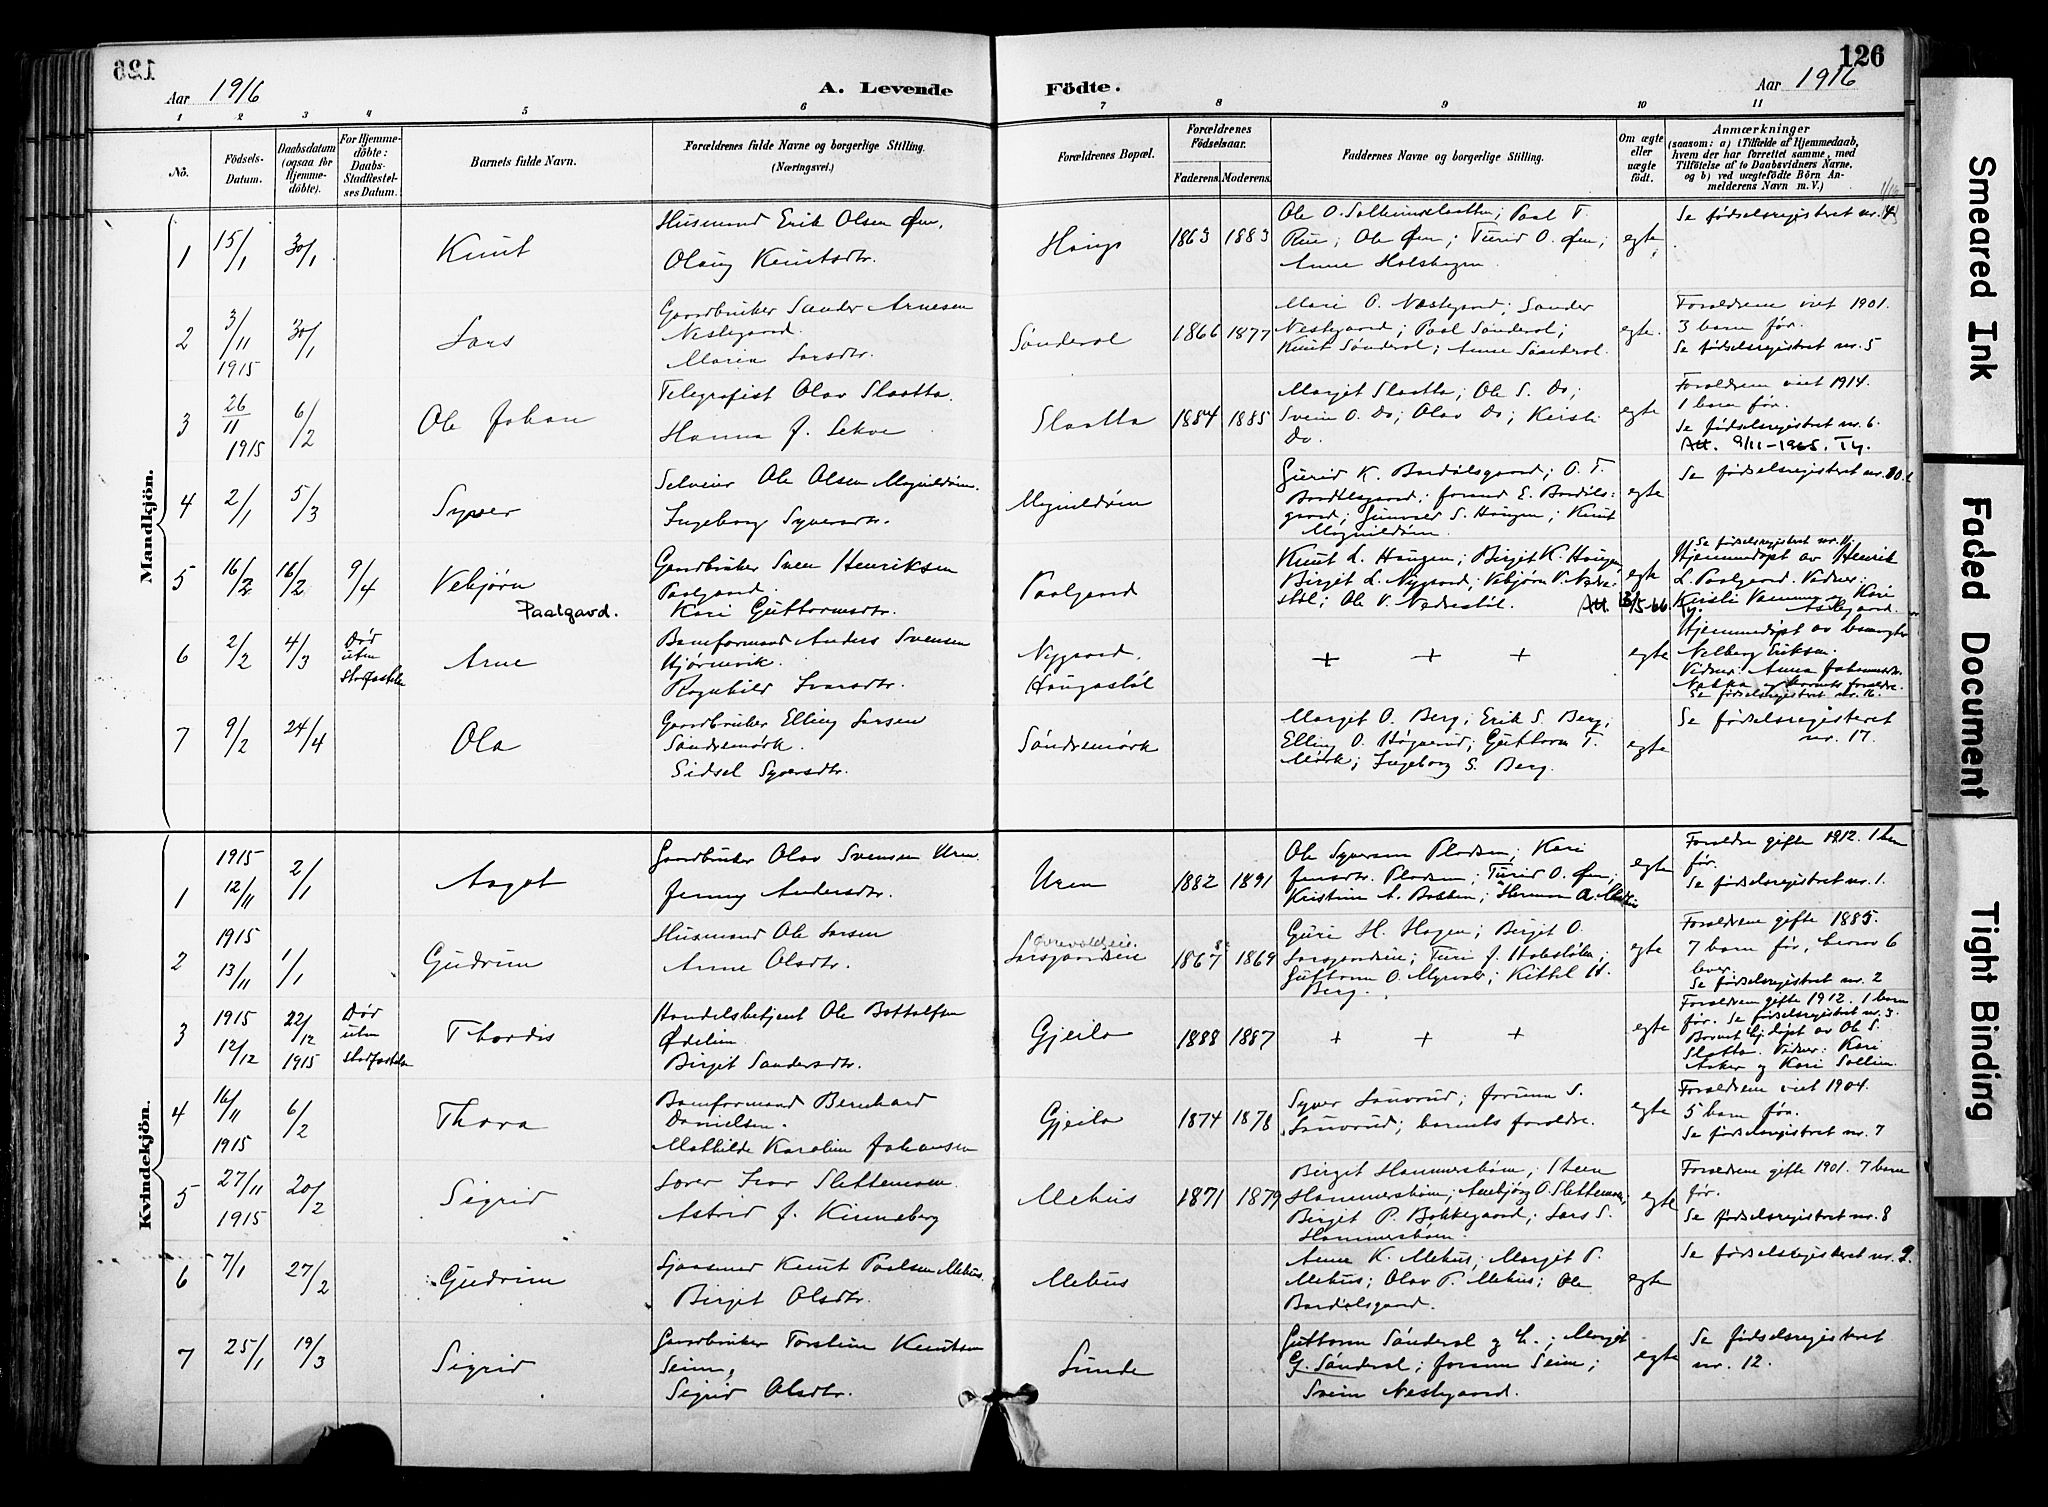 126
126
Aar 1916
A. Levende
Födte.
Aar 1916
1 2 3 4 5 6 7 8 9 10 11
Nö.
Födsels-Datum.
Daabsdatum (ogsaa for Hjemme-döbte).
For Hjemme-döbte: Daabs-Stadfæstel-ses Datum.
Barnets fulde Navn.
Forældrenes fulde Navne og borgerlige Stilling.
(Næringsvei.)
Forældrenes Bopæl.
Forældrenes Födselsaar.
Faderens. Moderens.
Faddernes Navne og borgerlige Stilling.
Om ægte eller uægte födt.
Anmærkninger
(saasom: a) i Tilfælde af Hjemmedaab,
hvem der har forrettet samme, med
Tilföielse af to Daabsvidners Navne,
og b) ved uægtefödte Börn An-
melderens Navn m. V.)
Mandkjön.
1 15/1 30/1 Knut
Husmand Erik Olsen Øen.
Olaug Knutsdtr.
Haugs 1863 1883
Ole O. Solheimslaatten; Paal T.
Rue; Ole Øen; Turid O. Øen;
Anne Halshagen.
egte
Se fødselsregistret nr. 4
2 3/11 1915 30/1 Lars
Gaardbruker Sander Arnesen
Nestegaard.
Maria Larsdtr.
Sønderal 1866 1877
Mari O. Nestegaard; Sander
Nestegaard; Paal Sønderal;
Knut Sønderal; Anne Sønderal.
egte.
Forældrene viet 1901.
3 barn før.
Se fødselsregistret nr. 5
3 26/11 1915 6/2 Ole Johan
Telegrafist Olav Slaatta.
Hanna J. Lekve
Slaatta 1884 1885
Margit Slaatta; Ole S. Do;
Svein O. Do; Olav Do; Kersti
Do.
egte
Forældrene viet 1914.
1 barn før.
Se fødselsregistret nr. 6.
Att. 9/11-1965. Ty.
4 2/1 5/3 Syver
Selveier Ole Olsen Mognildøen.
Ingeborg Syversdtr.
Mognildøen
Gurid K. Bardølsgaard; O. T.
Bardølsgaard; Jorand E. Bardøls-
gaard; Gunvald S. Haugen; Knut
Mognildøen.
egte
Se fødselsregistret nr. 10.
5 16/2 16/2 9/4 Vebjørn
Paalgard.
Gaardbruker Sven Henriksen
Paalgaard.
Kari Guttormsdtr.
Paalgaard
Knut L. Haugen; Birgit K. Haugen
Birgit L. Nygaard; Vebjørn V. Nedre-
støl; Ole V. Nedrestøl.
Att. 13/5-66 Ty.
egte
Se fødselsregistret nr. 11.
Hjemmedøpt av Henrik
L. Paalgaard. Vidner:
6 2/2 4/3 Dør uten stadfæstelse Arne
Banformand Anders Svensen
Hjørnevik.
Ragnhild Ivarsdtr.
Nygaard,
Haugastøl
+ + +
egte
Hjemmedøpt av
Eriksen.
Se fødselsregistret nr. 16.
7 9/2 24/4 Ola
Gaardbruker Elling Larsen
Søndremørk.
Sidsel Syversdtr.
Søndremørk
Margit O. Berg; Erik S. Berg;
Elling O. Høgerud; Guttorm T.
Mørk; Ingeborg S. Berg.
egte
Se fødselsregisteret
nr. 17.
Kvindekjön.
1 1915 12/11 2/1 Aagot
Gaardbruker Olav Svensen Uren.
Jenny Andersdtr.
Uren 1882 1891
Ole Syversen Pladsen; Kari
Jensdtr. Pladsen; Turid O. Øen;
Kristine A. Bakken; Herman A.
egte
Forældre gifte 1912. 1 barn
før.
Se fødselsregistret nr. 1.
2 1915 13/11 1/1 Gudrun
Husmand Ole Larsen
Anne Olsdtr.
Larsgardseie 1867 1869
Guri H. Hagen; Birgit O.
Larsgardseie; Turi J.
Guttorm O. Myrvold; Kittil H.
Berg.
egte
Forældrene gifte 1885.
7 barn før, herav 6
lever.
Se fødselsregistret nr. 2
3 1915 12/12 22/12 1915 Dør uten stadfæstelse Thordis
Handelsbetjent Ole Bottolfsen
Ødelien.
Birgit Sandersdtr.
Gjeilo 1888 1887
+ + +
egte
Forældrene gifte 1912. 1 barn
før. Se fødselsregistret nr. 3.
Barnet hj.døpt av Ole S.
Slatta. Vidner: Kari
Asker og Kari Sollien.
4 16/11 1915 6/2 Thora
Banformand Bernhard
Danielsen.
Mathilde Karoline Johansen
Gjeilo 1874 1878
Syver Lauvrud; Jorunn S.
Lauvrud; barnets forældre.
egte
Forældrene viet 1904.
5 barn før.
Se fødselsregistret nr. 7
5 27/11 1915 20/2 Sigrid
Lærer Ivar Slettemoen.
Astrid J. Kinneberg
Mehus 1871 1879
Birgit Hammersbøen; Sten
Hammersbøen; Anebjørg O. Slettemoen;
Birgit P. Bakkegaard; Lars S.
Hammersbøen.
egte
Forældrene gifte 1901. 7 barn
før.
Se fødselsregistret nr. 8
6 7/1 27/2 Gudrun
Knut Paalsen Mehus.
Birgit Olsdtr.
Mehus
Anne K. Mehus; Margit P.
Mehus; Olav P. Mehus; Ole
Bardølsgaard.
egte
Se fødselsregisteret nr. 9.
7 25/1 19/3 Sigrid
Gaardbruker Torstein Knutsen
Seim,
Sigrid Olsdtr.
Sunde
Guttorm Sønderal og h.; Margit
G. Sønderal; Jorunn Seim;
Svein Nestegaard.
egte
Se fødselsregisteret
nr. 12.
Smeared Ink
Faded Document
Tight Binding